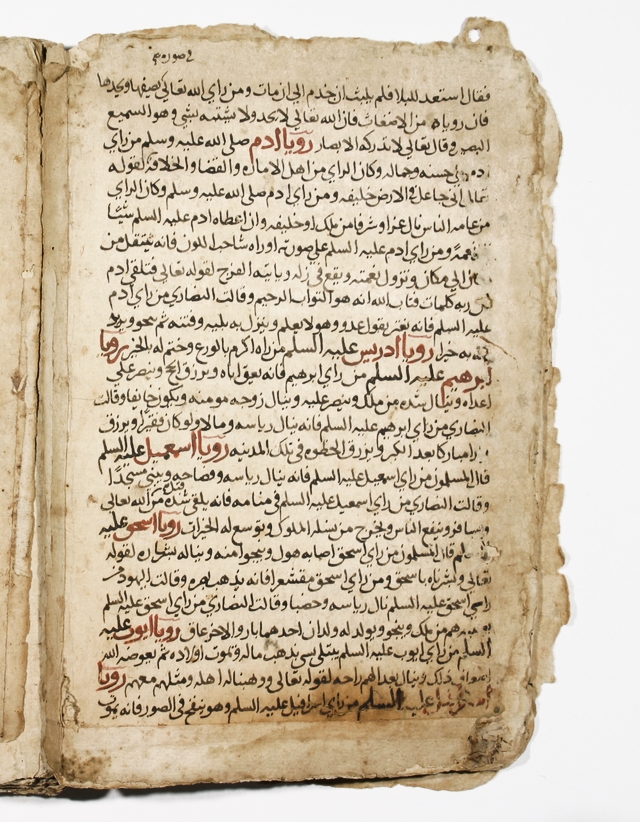 فقال استعد للبلا فلم يلبث ان خدم الى ان مات ومن راى الله تعالى
فان روياه من الاضغاث فان الله تعالى لا يحد ولا يشبه بشي وهو السميع
البصير وقال تعالى لا تدركه الابصار رويا ادم صلى الله عليه وسلم من راى
حسنه وجماله وكان الراى من اهل الاماره والقضا والخلافة لقوله
تعالى انى جاعل فى الارض خليفه ومن راى ادم صلى الله عليه وسلم وكان الراى
من عامه الناس نال عزا وشرفا من ملك او خليفه وان اعطاه ادم عليه السلم شيئا
ومن راى ادم عليه السلم على صورته او راه شاحب اللون فانه ينتقل من
الى مكان وتزول نعمته ويقع فى زله وياتيه الفرج لقوله تعالى فتلقى ادم
من ربه كلمات فتاب الله انه هو التواب الرحيم وقالت النصارى من راى ادم
عليه السلم فانه يغتر بقول عدو وهو لا يعلم وينزل به بليه وفتنه ثم ينجو
رويا ادريس عليه السلم من راه اكرم بالورع وختم له بالخير رويا
ابرهيم عليه السلم من راى ابرهيم فانه يعق اباه ويرزق الحج وينصر على
اعداه وينال شده من ملك وينصر عليه وينال زوجه مومنه ويكون وقالت
النصارى من راى ابرهيم عليه السلم فانه ينال رياسه ومالا ولو كان فقيرا ويرزق
مباركا بعد الكبر ويرزق الحظوه فى تلك المدينه رويا اسمعيل عليه السلم
قال المسلمون من راى اسمعيل عليه السلم فانه ينال رياسه وفصاحه ويبنى مسجدا
وقالت النصارى من راى اسمعيل عليه السلم فى منامه فانه يلقى شده من الله تعالى
ويسافر وينفع الناس ويخرج من نسله الملوك ويوسع له الخيرات رويا اسحق عليه
قال المسلمون من راى اسحق اصابه هول وينجوا منه ويناله بشاره لقوله
تعالى وبشرناه باسحق ومن راى اسحق مقشعرا فانه يذهب بصره وقالت اليهود من
راى اسحق عليه السلم نال رياسه وخصبا وقالت النصارى من راى اسحق عليه السلم
من ملك وينجو ويولد له ولدان احدهما بار والاخر عاق رويا ايوب عليه
السلم من راى ايوب عليه السلم يبتلى يذهب ماله وتموت اولاده ثم يعوضه الله
ذلك وينال بعد الهم راحه لقوله تعالى ووهبنا له اهله ومثلهم معهم رويا
السلم من راى اسرافيل عليه السلم وهو ينفخ فى الصور فانه